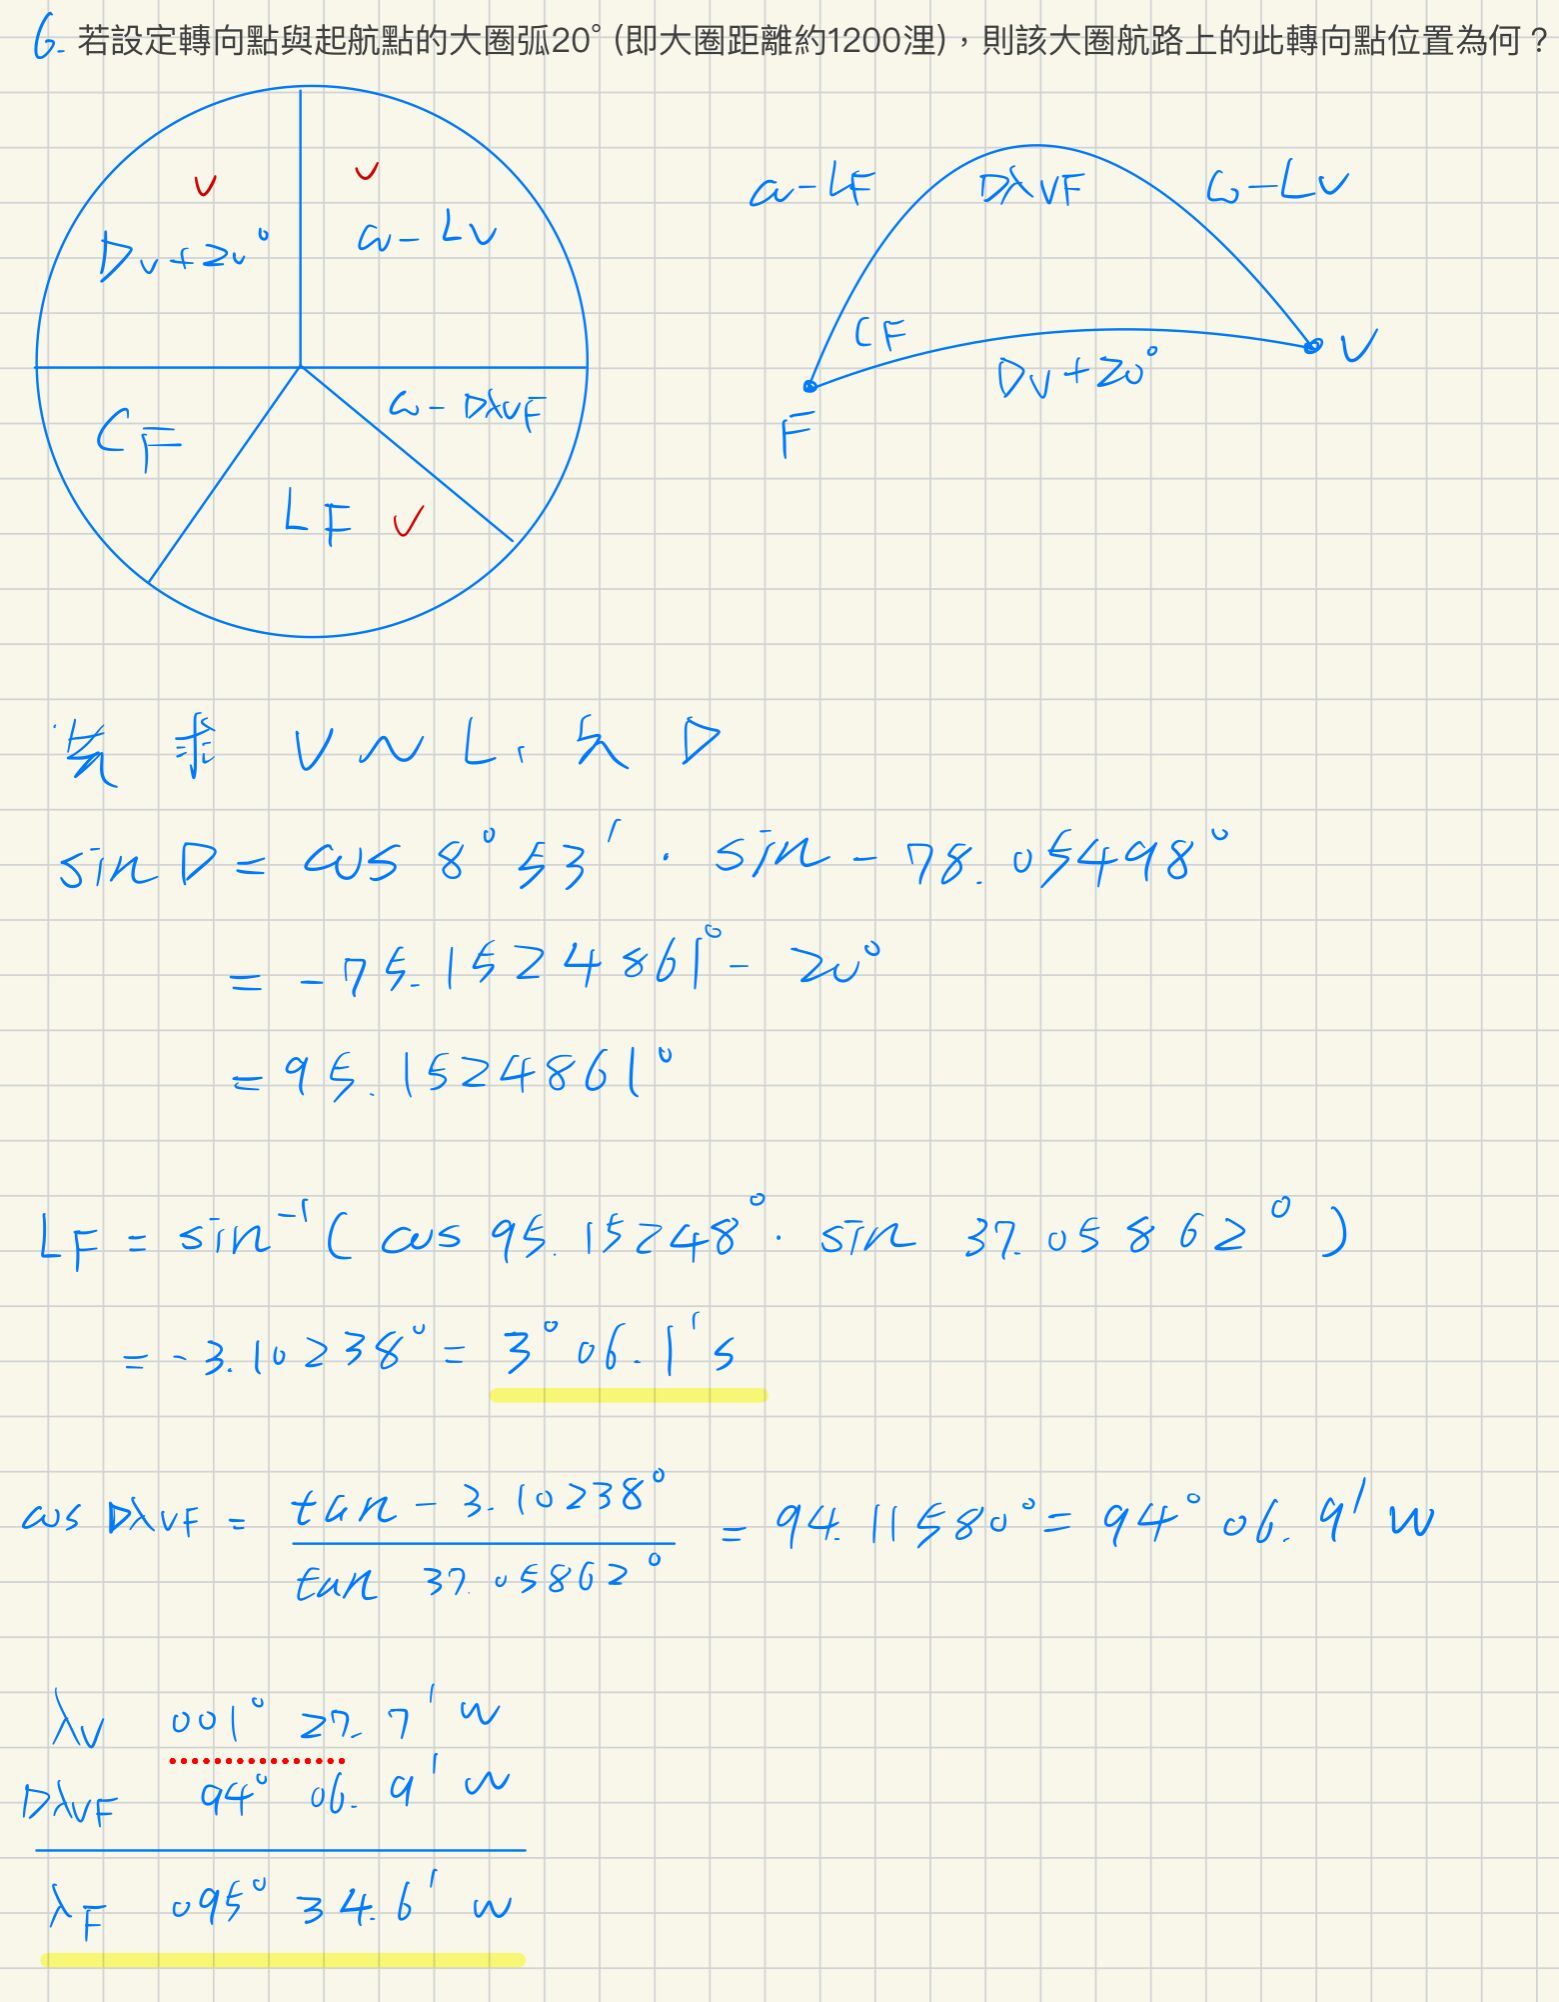 6. 若設定轉向點與起航點的大圈弧20° (即大圈距離約1200浬)，則該大圈航路上的此轉向點位置為何？
Dv+20° co-Lv
CF LF co-DλvF
co-LF DλVF co-Lv
CF Dv+20° V
F
先求 V~L, 先 D
sin D = cos 8° 53' · sin - 78.05498°
= -75.1524861° - 20°
= 95.1524861°
LF = sin⁻¹ ( cos 95.15248° · sin 37.05862° )
= -3.10238° = 3° 06.1' S
cos DλVF = tan - 3.10238° / tan 37.05862° = 94.11580° = 94° 06.9' W
λV 001° 27.7' W
DλVF 94° 06.9' W
λF 095° 34.6' W